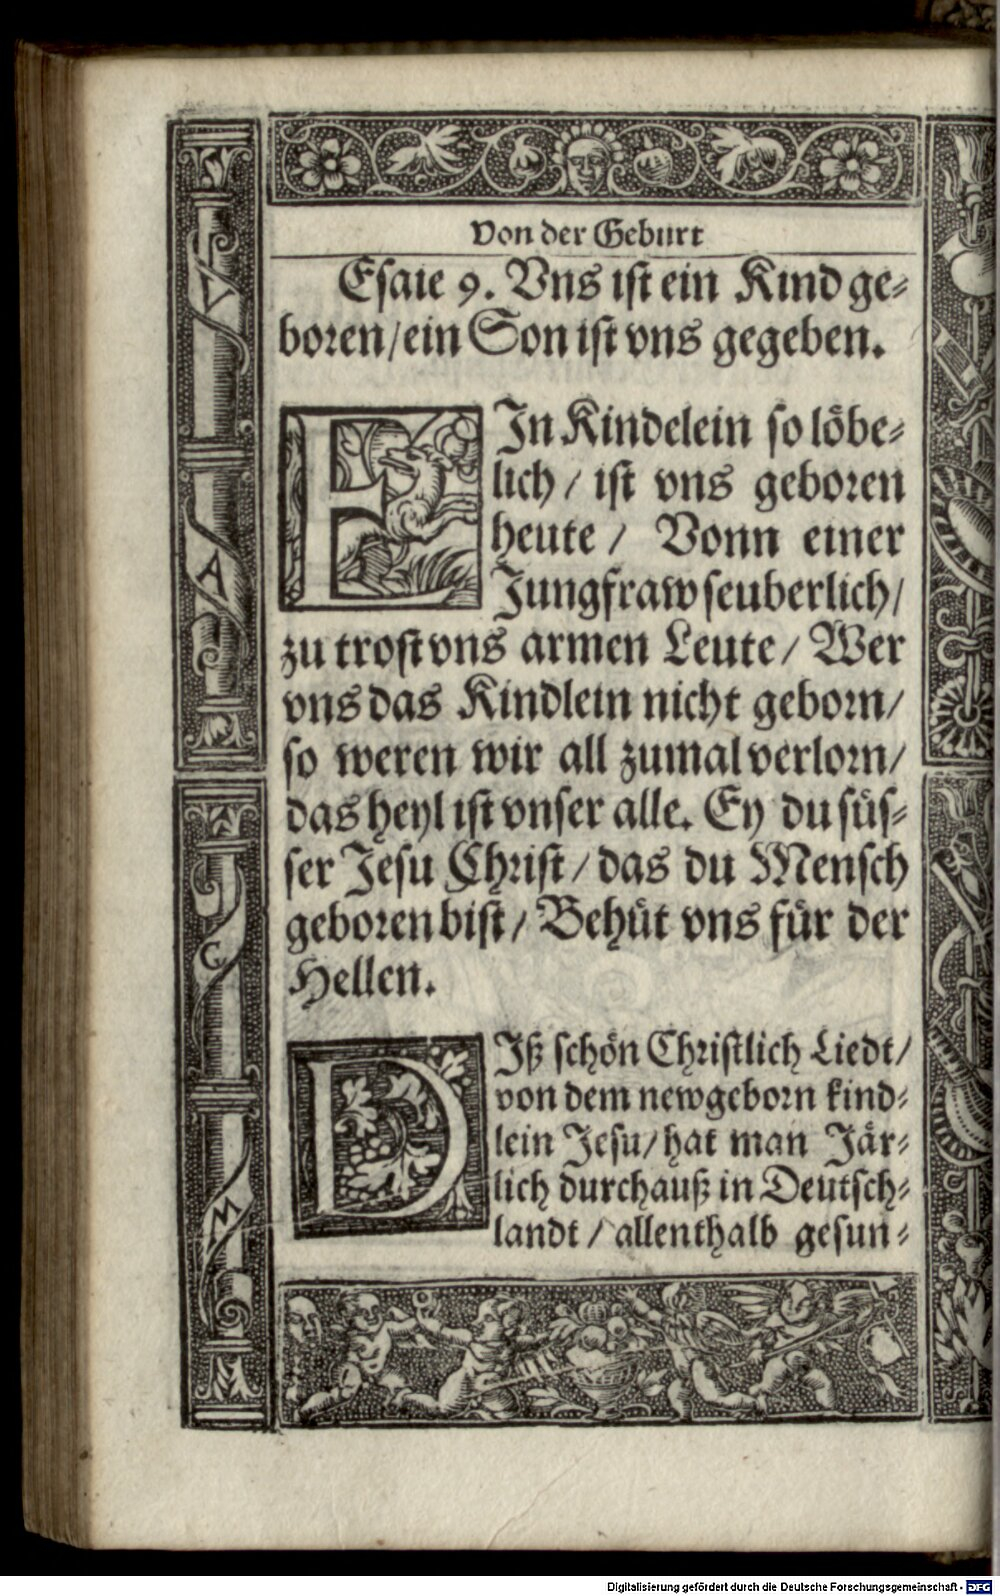 Von der Geburt
Esaie 9. Vns ist ein Kind ge⸗
boren/ein Son ist vns gegeben.
EJn Kindelein so löbe⸗
lich / ist vns geboren
heute / Vonn einer
Jungfraw seuberlich/
zu trost vns armen Leute / Wer
vns das Kindlein nicht geborn/
so weren wir all zumal verlorn/
das heyl ist vnser alle. Ey du süs⸗
ser Jesu Christ / das du Mensch
geboren bist / Behüt vns für der
Hellen.
DJß schön Christlich Liedt/
von dem newgeborn kind⸗
lein Jesu / hat man Jär⸗
lich durchauß in Deutsch⸗
landt / allenthalb gesun⸗
V
A
G
M
Digitalisierung gefördert durch die Deutsche Forschungsgemeinschaft - DFG